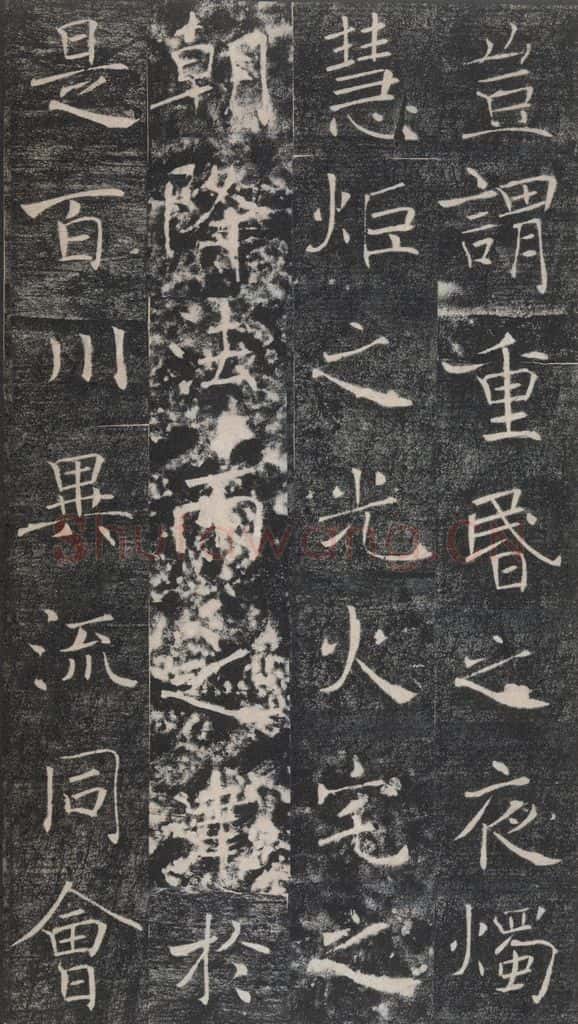 豈謂重昏之夜燭
慧炬之光火宅之
朝降法雨之津於
是百川異流同會
shufawang.cn